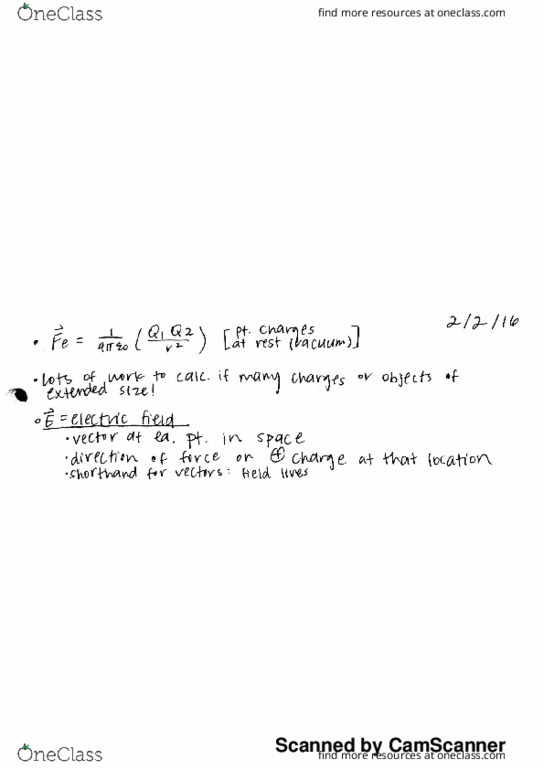 OneClass
find more resources at oneclass.com
2/2/16
• F⃗e = 1/4πε0 (Q1 Q2/r²) [pt. charges at rest (vacuum)]
• lots of work to calc. if many charges or objects of
extended size!
• E⃗ = electric field
• vector at ea. pt. in space
• direction of force on ⊕ charge at that location
• shorthand for vectors: field lines
Scanned by CamScanner
OneClass
find more resources at oneclass.com